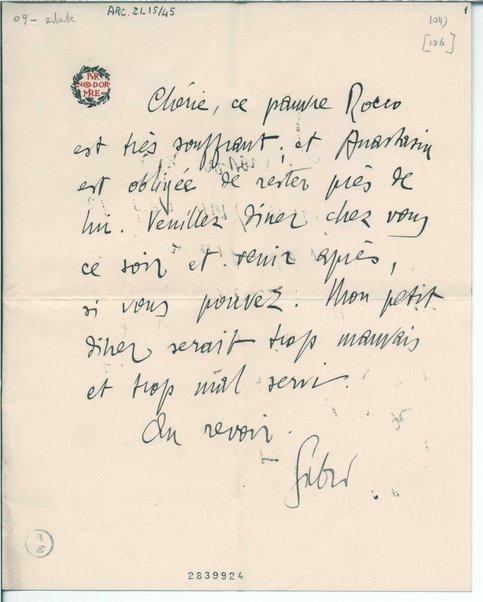 09-
ARC.21.15/45
104)
[106]
1
PER
NON DOR
MIRE
Chérie, ce pauvre Rocco
est très souffrant; et Anastasia
est obligée de rester près de
lui. Veuillez dîner chez vous
ce soir et venir après,
si vous pouvez. Mon petit
dîner serait trop mauvais
et trop mal servi.
Au revoir.
Gabri
2839924